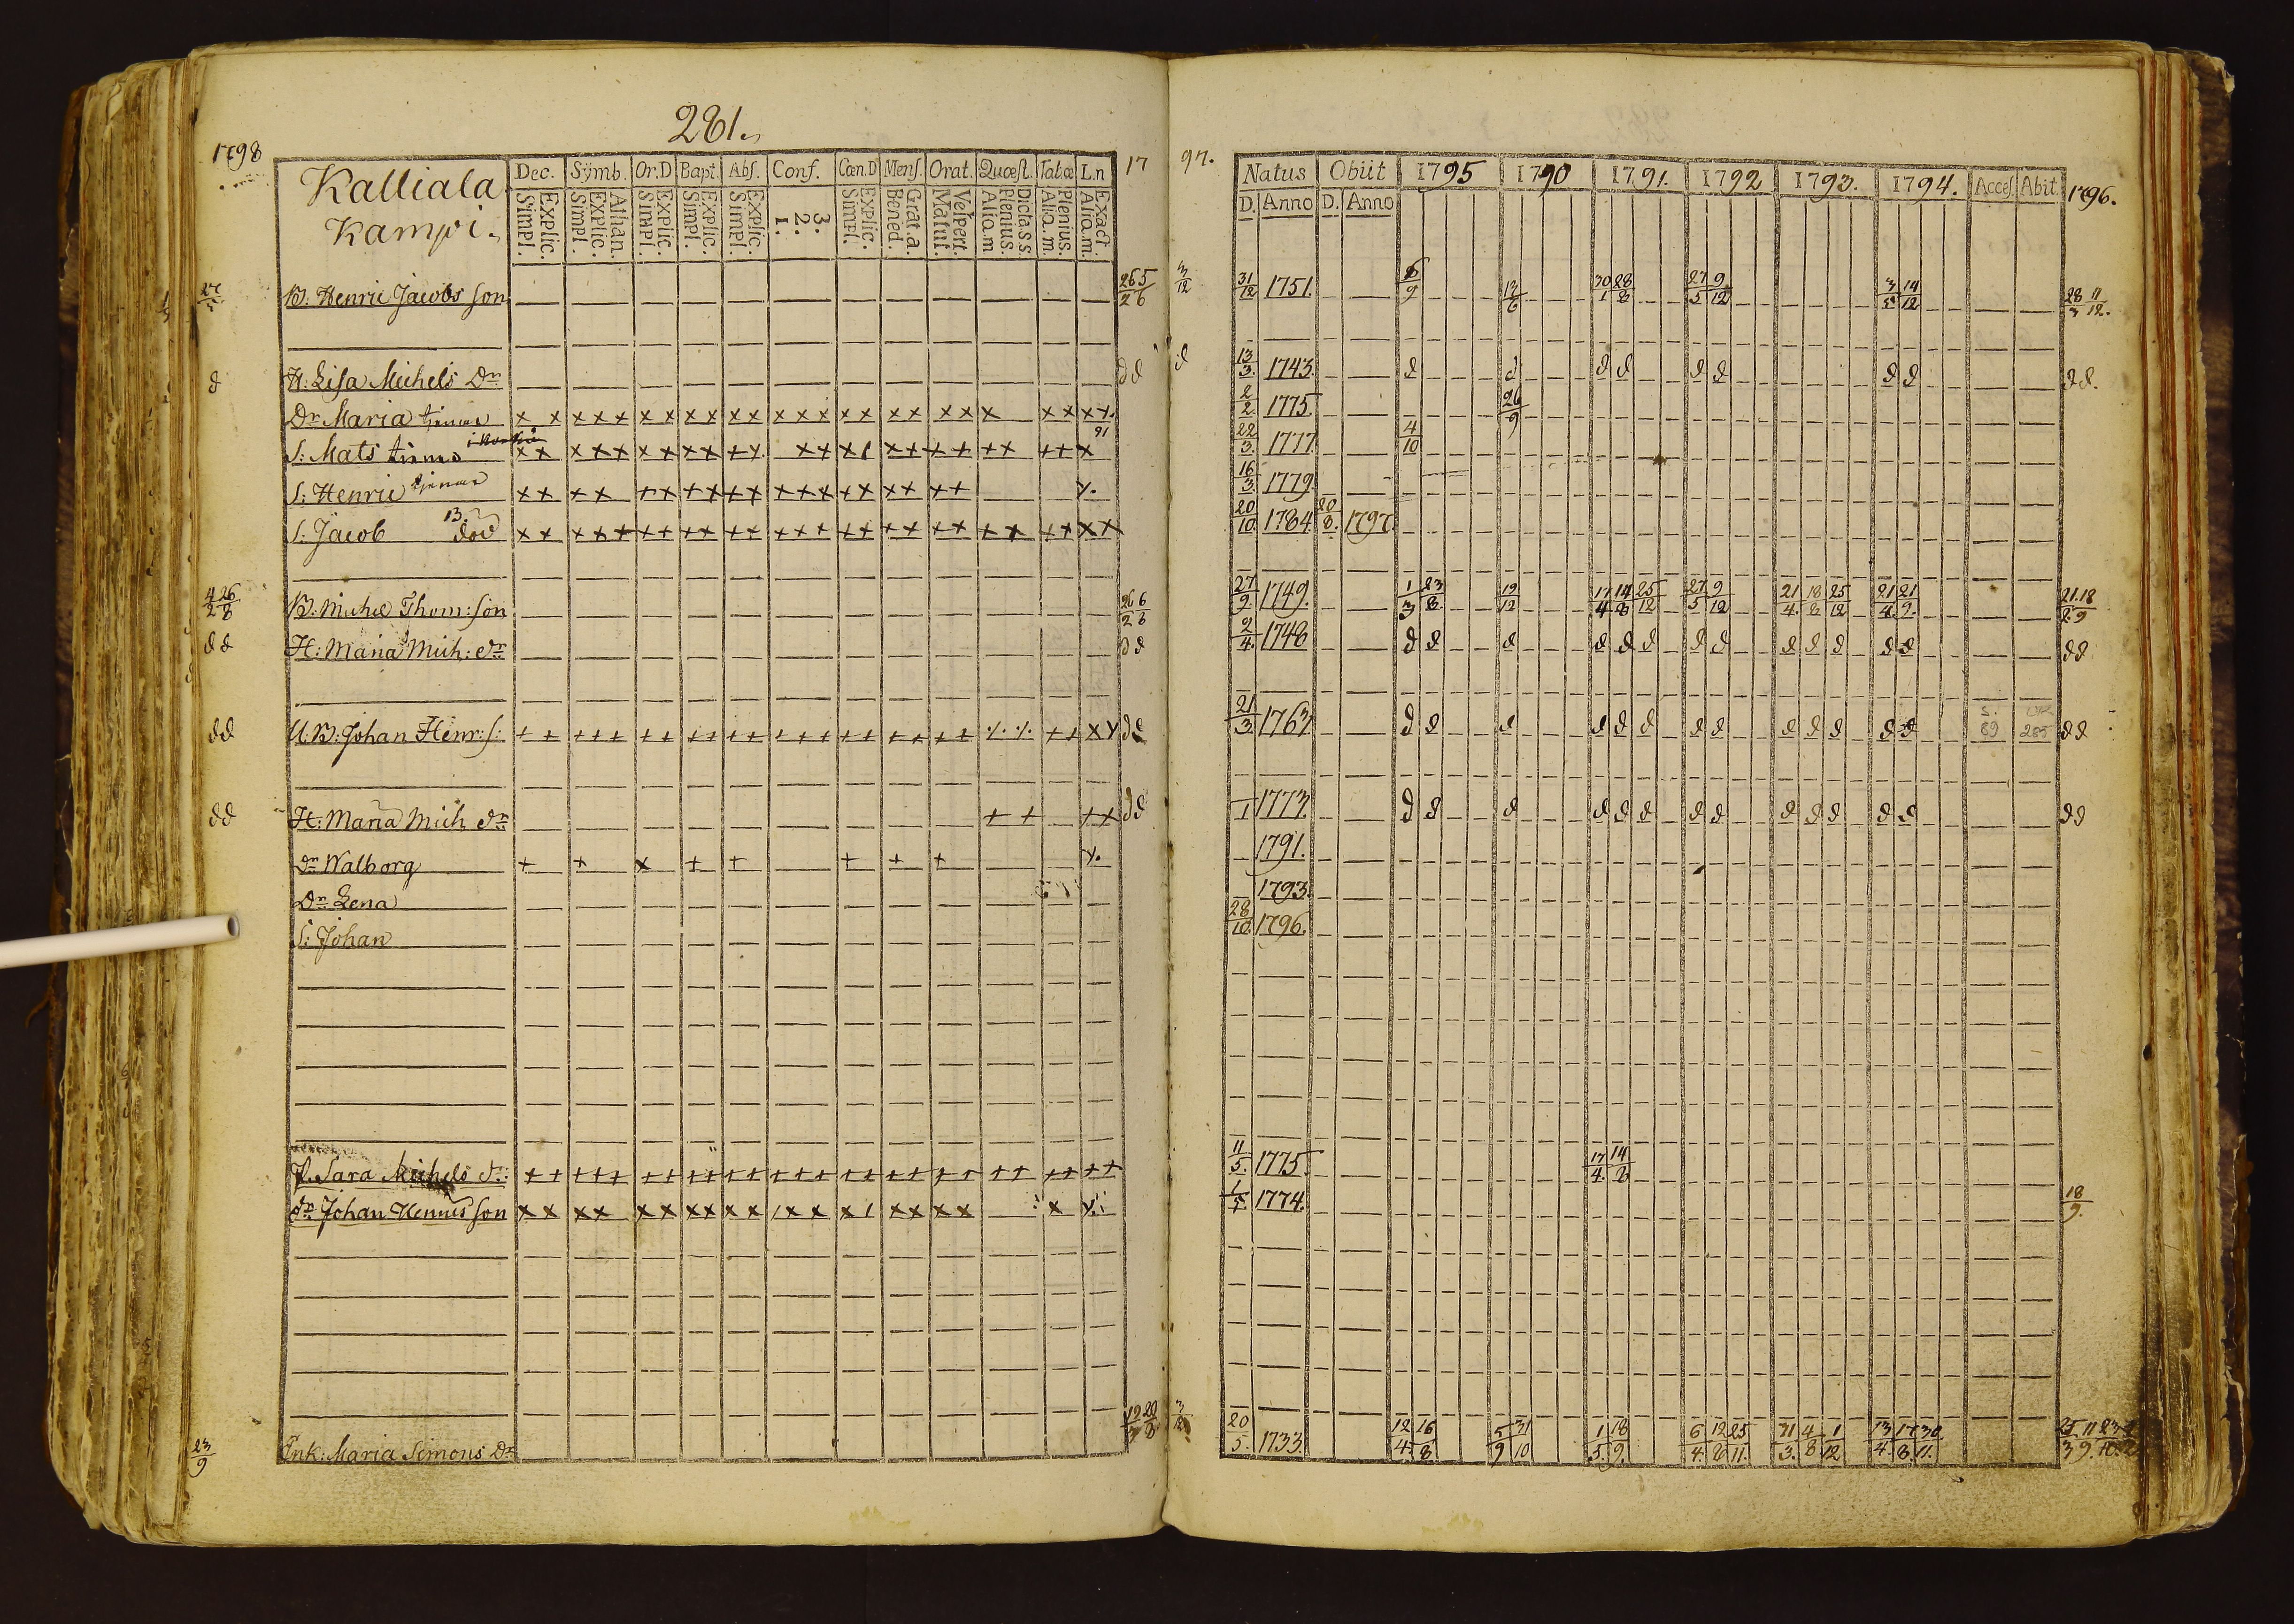 281.
1798
Kalliala
Kampi.
Dec. Symb. Or.D Bapt. Abs. Conf. Cœn.D Mens. Orat. Quæst. Tab.œ L.n
Explic. Simpl. Athan. Explic. Simpl. Explic. Simpl. Explic. Simpl. Explic. Simpl. 3. 2. 1. Explic. Simpl. Grat.a. Bened. Vespert. Matut. Dicta s s Plenius. Aliq.m Plenius. Aliq.m. Exact. Aliq.m.
17 97.
Natus Obiit 1795 1790 1791. 1792 1793. 1794. Acces. Abit. 1796.
D. Anno D. Anno
B: Henric Jacobs son 3/12 31/12 1751. 6/9 13/6 30/1 28/8 27/5 9/12 3/5 14/12 28/3 11/12.
d H: Lisa Michels Dr d d d 13/3. 1743. d d d d d d d d d d.
Dr Maria tjenar x x x x x x x x x x x x x x x x x x x x x x x x x x. 2/2. 1775. 26/9
S: Mats tienar x x x x x x x x x + x x x x 1 x x + + + + + + x 91 22/3. 1777. 4/10
S: Henric tjenar x x x x + x + x x x x x x x x x x x x x. 16/3. 1779.
S: Jacob 13. död x x x x x + + + + + + + + + + + + + x x + + + + x x 20/10. 1784. 20/8. 1797.
4/2 26/8 B: Michel Thom: son 26/2 6/8 27/9. 1749. 1/3 23/8. 19/12 17/4 14/8 25/12 27/5 9/12 21/4. 18/8 25/12 21/4 21/9. 21/2 18/9
d d H: Maria Mich: dr d d 2/4. 1748 d d d d d d d d d d d d d d d
d d U.B: Johan Henr: s: + + + + + + + + + + + + + + + + + + + + ٪ ٪ + + x y d d 21/3. 1763. d d d d d d d d d d d d d 89 285 d d
d d H: Maria Mich dr + + + + d d 1773. d d d d d d d d d d d d d d d
Dr Walborg + + x + + + + + y. 1791.
Dr Lena 1793.
S: Johan 28/10. 1796.
P. Sara Michels dr: + + + + + + + + + + + + + + + + + + + + + + + + + + 11/5. 1775. 17/4. 14/8
dr: Johan Hennus son x x x x x x x x x x 1 x x x 1 x x x x x 1774. 18/9.
23/9 Enk: Maria Simons Dr 3/12 20/5. 1733. 12/4. 16/8. 5/9 31/10 1/5. 18/9. 6/4. 12/8 25/11. 31/3. 4/8 1/12 13/4. 17/8. 30/11.